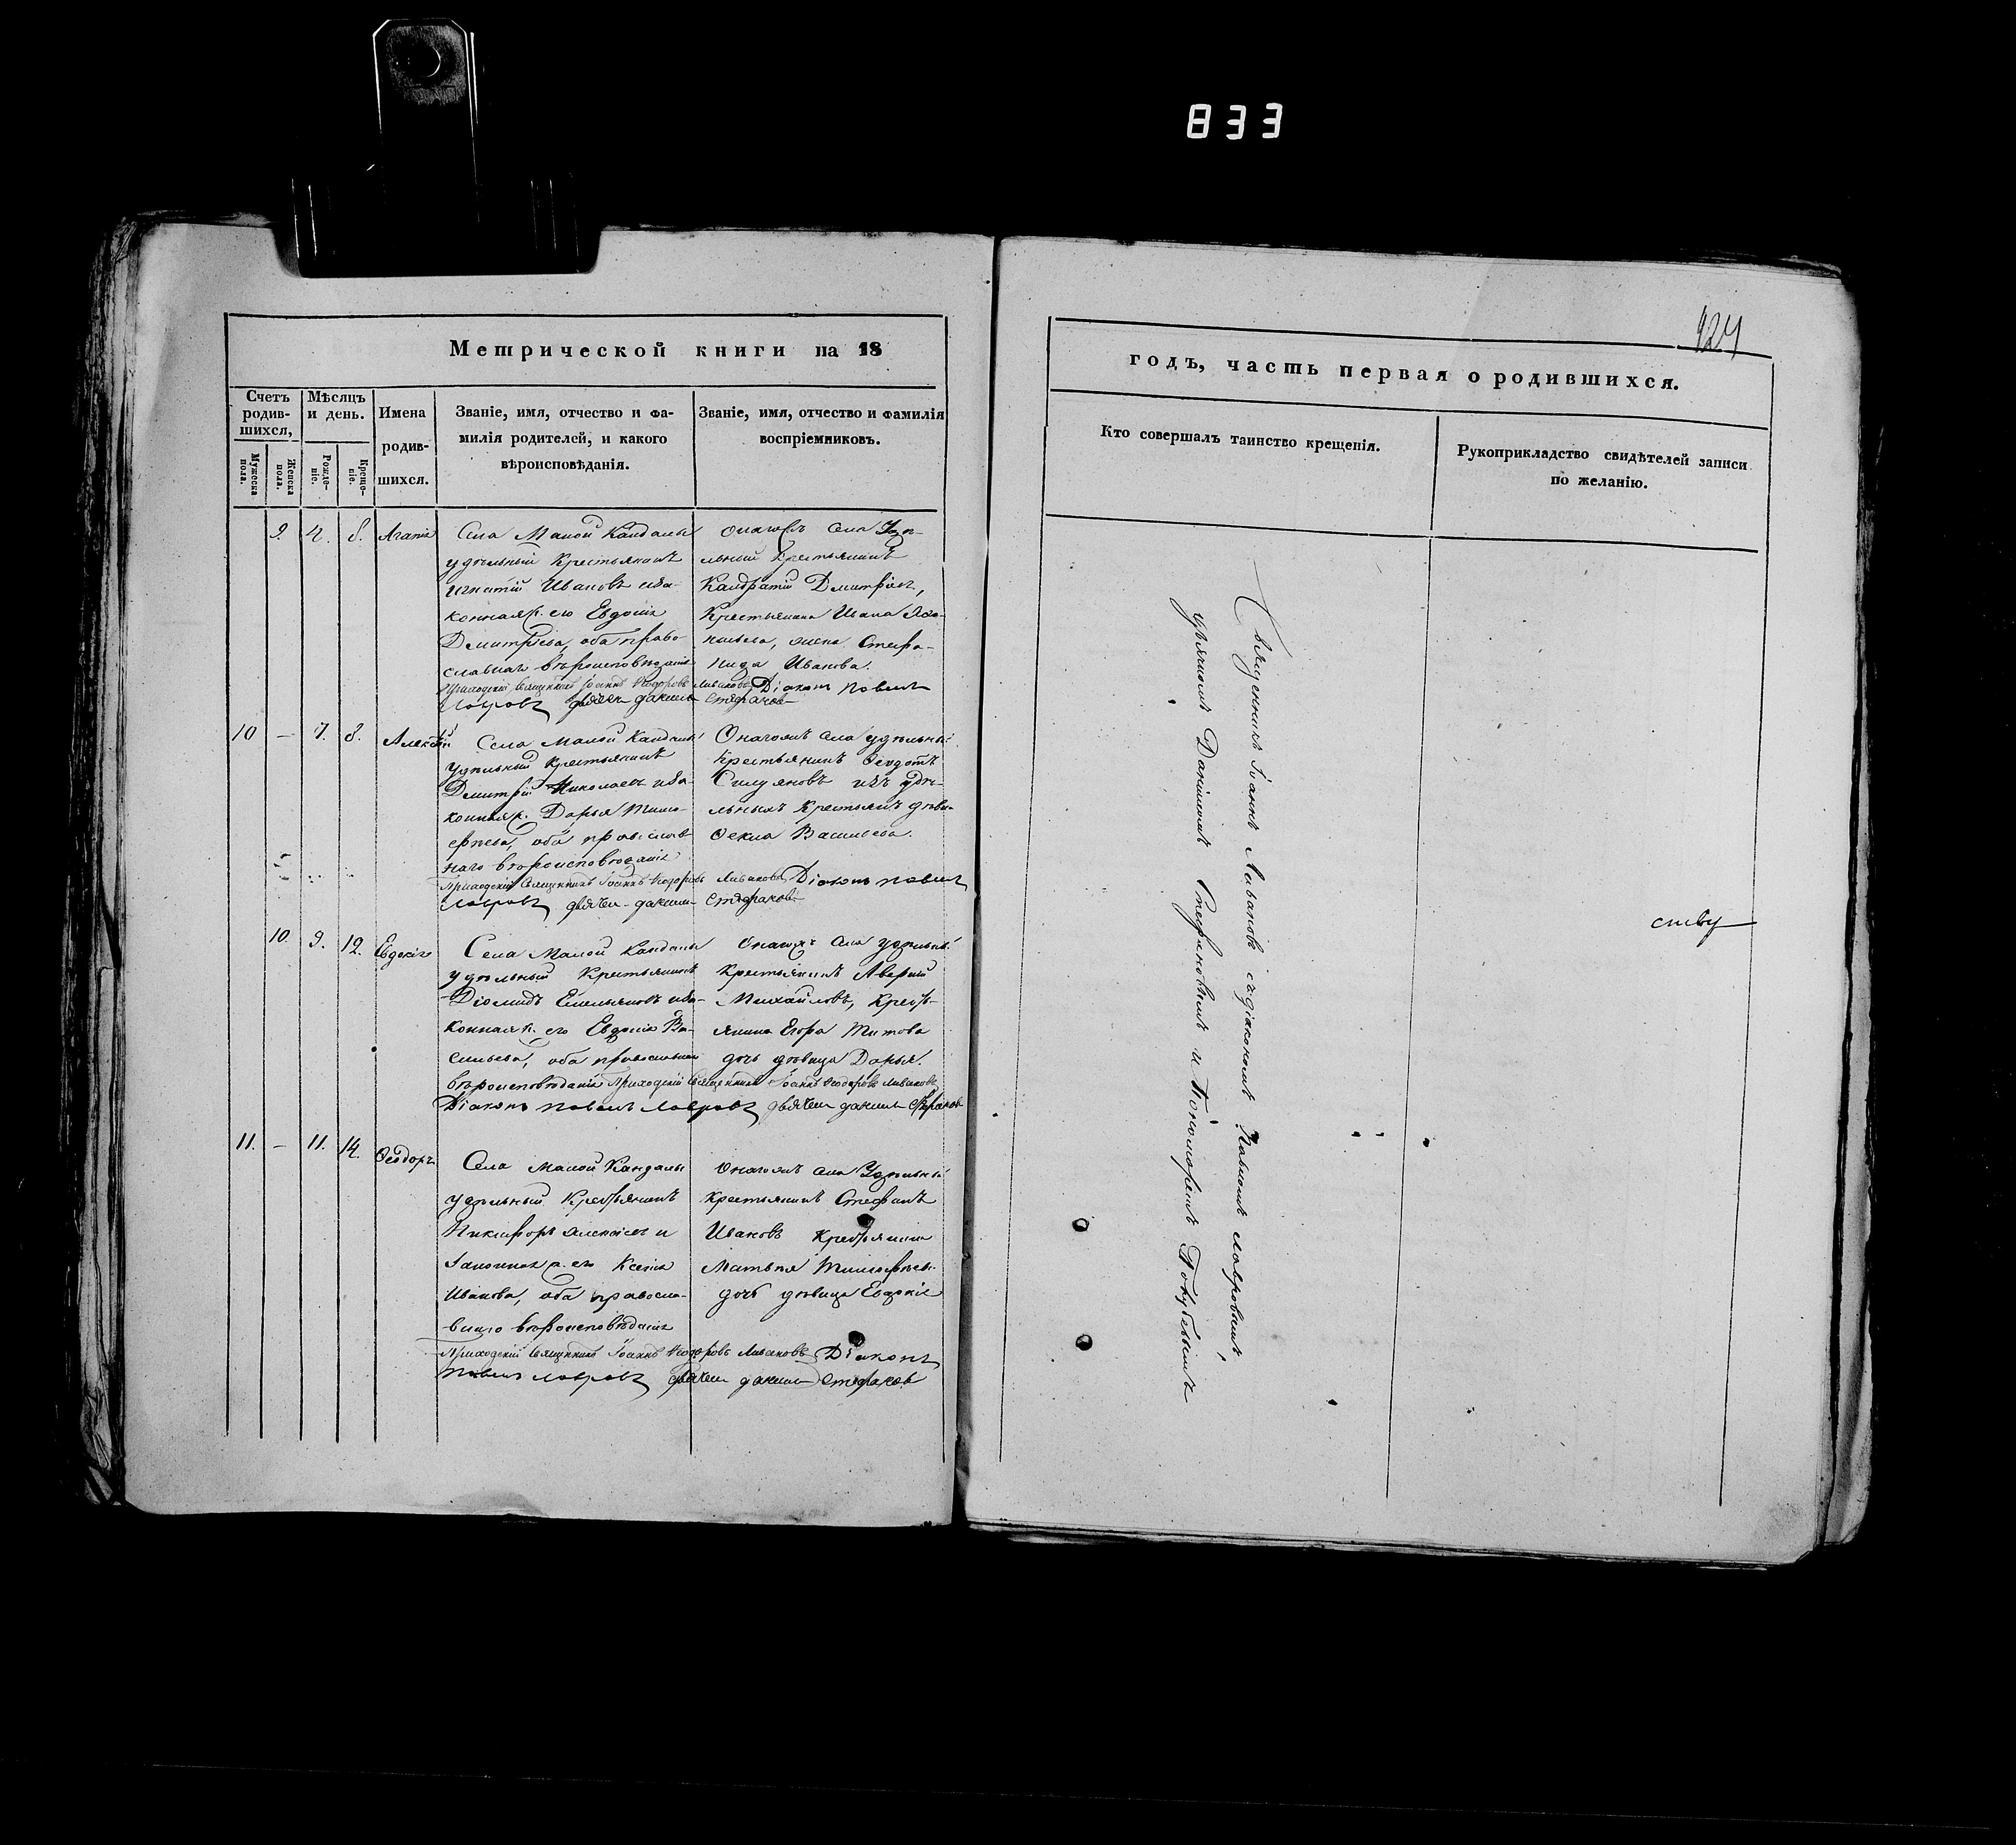 833
Метрической книги на 18
Счетъ родив-шихся,
Мѣсяцъ и день.
Имена родив-шихся.
Званіе, имя, отчество и фа-
милія родителей, и какого
вѣроисповѣданія.
Званіе, имя, отчество и фамилія
воспріемниковъ.
Мужеска пола.
Женска пола.
Рожде-ніе.
Креще-ніе.
9. 4. 8. Агапія
Села Малой Кандалы
удѣльный Крестьянинъ
Игнатій Ивановъ иза-
конная его Евдокія
Дмитріева, оба право-
славнаго вѣроисповѣданія
Онагожъ села Удѣ-
льный Крестьянинъ
Кандратій Дмитріевъ,
Крестьянина Ивана
жена Стефа-
нида Иванова.
Приходскій Священникъ Іоаннъ Ѳеодоровъ Ливановъ Діаконъ Павелъ
Лавровъ дьячекъ Данiилъ Стефановъ
10 — 7. 8. Алексѣй
Села Малой Кандалы
Удѣльный Крестьянинъ
Дмитрій Николаевъ иза-
конная Дарья Тимо-
феева, оба православ
наго вѣроисповѣданія
Онагожъ села удѣльный
Крестьянинъ Ѳеодотъ
Силуяновъ изъ удѣ-
льныхъ Крестьянъ дѣвица
Ѳекла Васильева.
Приходскій Священникъ Іоаннъ Ѳеодоровъ Ливановъ Діаконъ Павелъ
Лавровъ дьячекъ Данiилъ Стефановъ
10. 9. 12. Евдокія
Села Малой Кандалы
удѣльный Крестьянинъ
Діомидъ Емельяновъ иза-
конная его Евдокія Ва-
сильева, оба православнаго
вѣроисповѣданія
Онагожъ села удѣльный
Крестьянинъ Аверкій
Михайловъ, Кресть-
янина Егора Титова
дочь дѣвица Дарья.
Приходскій Священникъ Іоаннъ Ѳеодоровъ Ливановъ
Діаконъ Павелъ Лавровъ дьячекъ Данiилъ Стефановъ
11. — 11. 14. Ѳеодоръ
Села Малой Кандалы
удѣльный Крестьянинъ
Никифоръ Алексѣевъ и
законная его Ксенія
Иванова, оба правосла-
внаго вѣроисповѣданія
Онагожъ села Удѣльный
Крестьянинъ Стефанъ
Ивановъ Крестьянина
Матвѣя Тимофеева
дочь дѣвица Евдокія
Приходскій Священникъ Іоаннъ Ѳеодоровъ Ливановъ Діаконъ
Павелъ Лавровъ дьячекъ Данiилъ Стефановъ
годъ, часть первая о родившихся.
Кто совершалъ таинство крещенія.
Рукоприкладство свидѣтелей записи
по желанію.
Священникъ Іоаннъ Ливановъ съ діакономъ Павломъ Лавровымъ,
Даніиломъ Стефановымъ и Пономаремъ